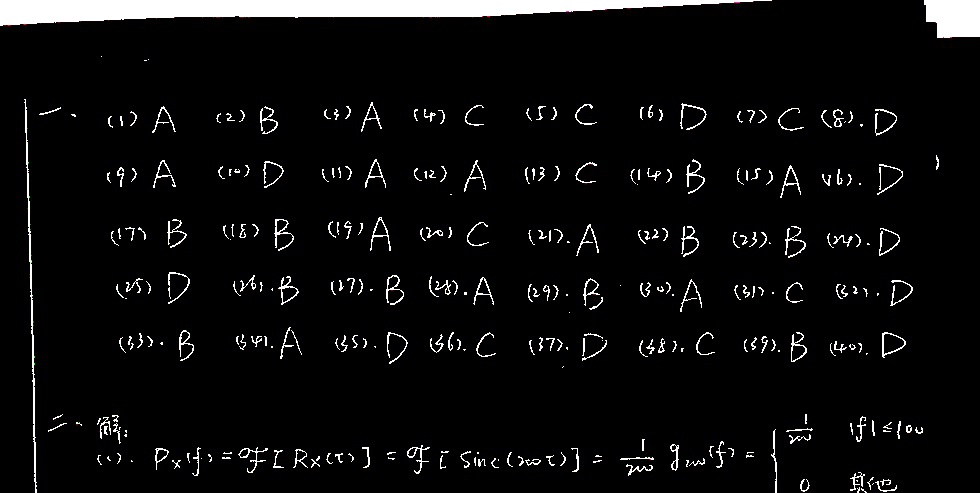 一、 (1) A (2) B (3) A (4) C (5) C (6) D (7) C (8). D
(9) A (10) D (11) A (12) A (13) C (14) B (15) A (16). D
(17) B (18) B (19) A (20) C (21). A (22) B (23). B (24). D
(25) D (26). B (27). B (28). A (29). B (30). A (31). C (32). D
(33). B (34). A (35). D (36). C (37). D (38). C (39). B (40). D
二、解:
(1). Px(f) = ℱ[Rx(τ)] = ℱ[Sinc(200τ)] = 1/200 g200(f) = { 1/200 |f|≤100
0 其他